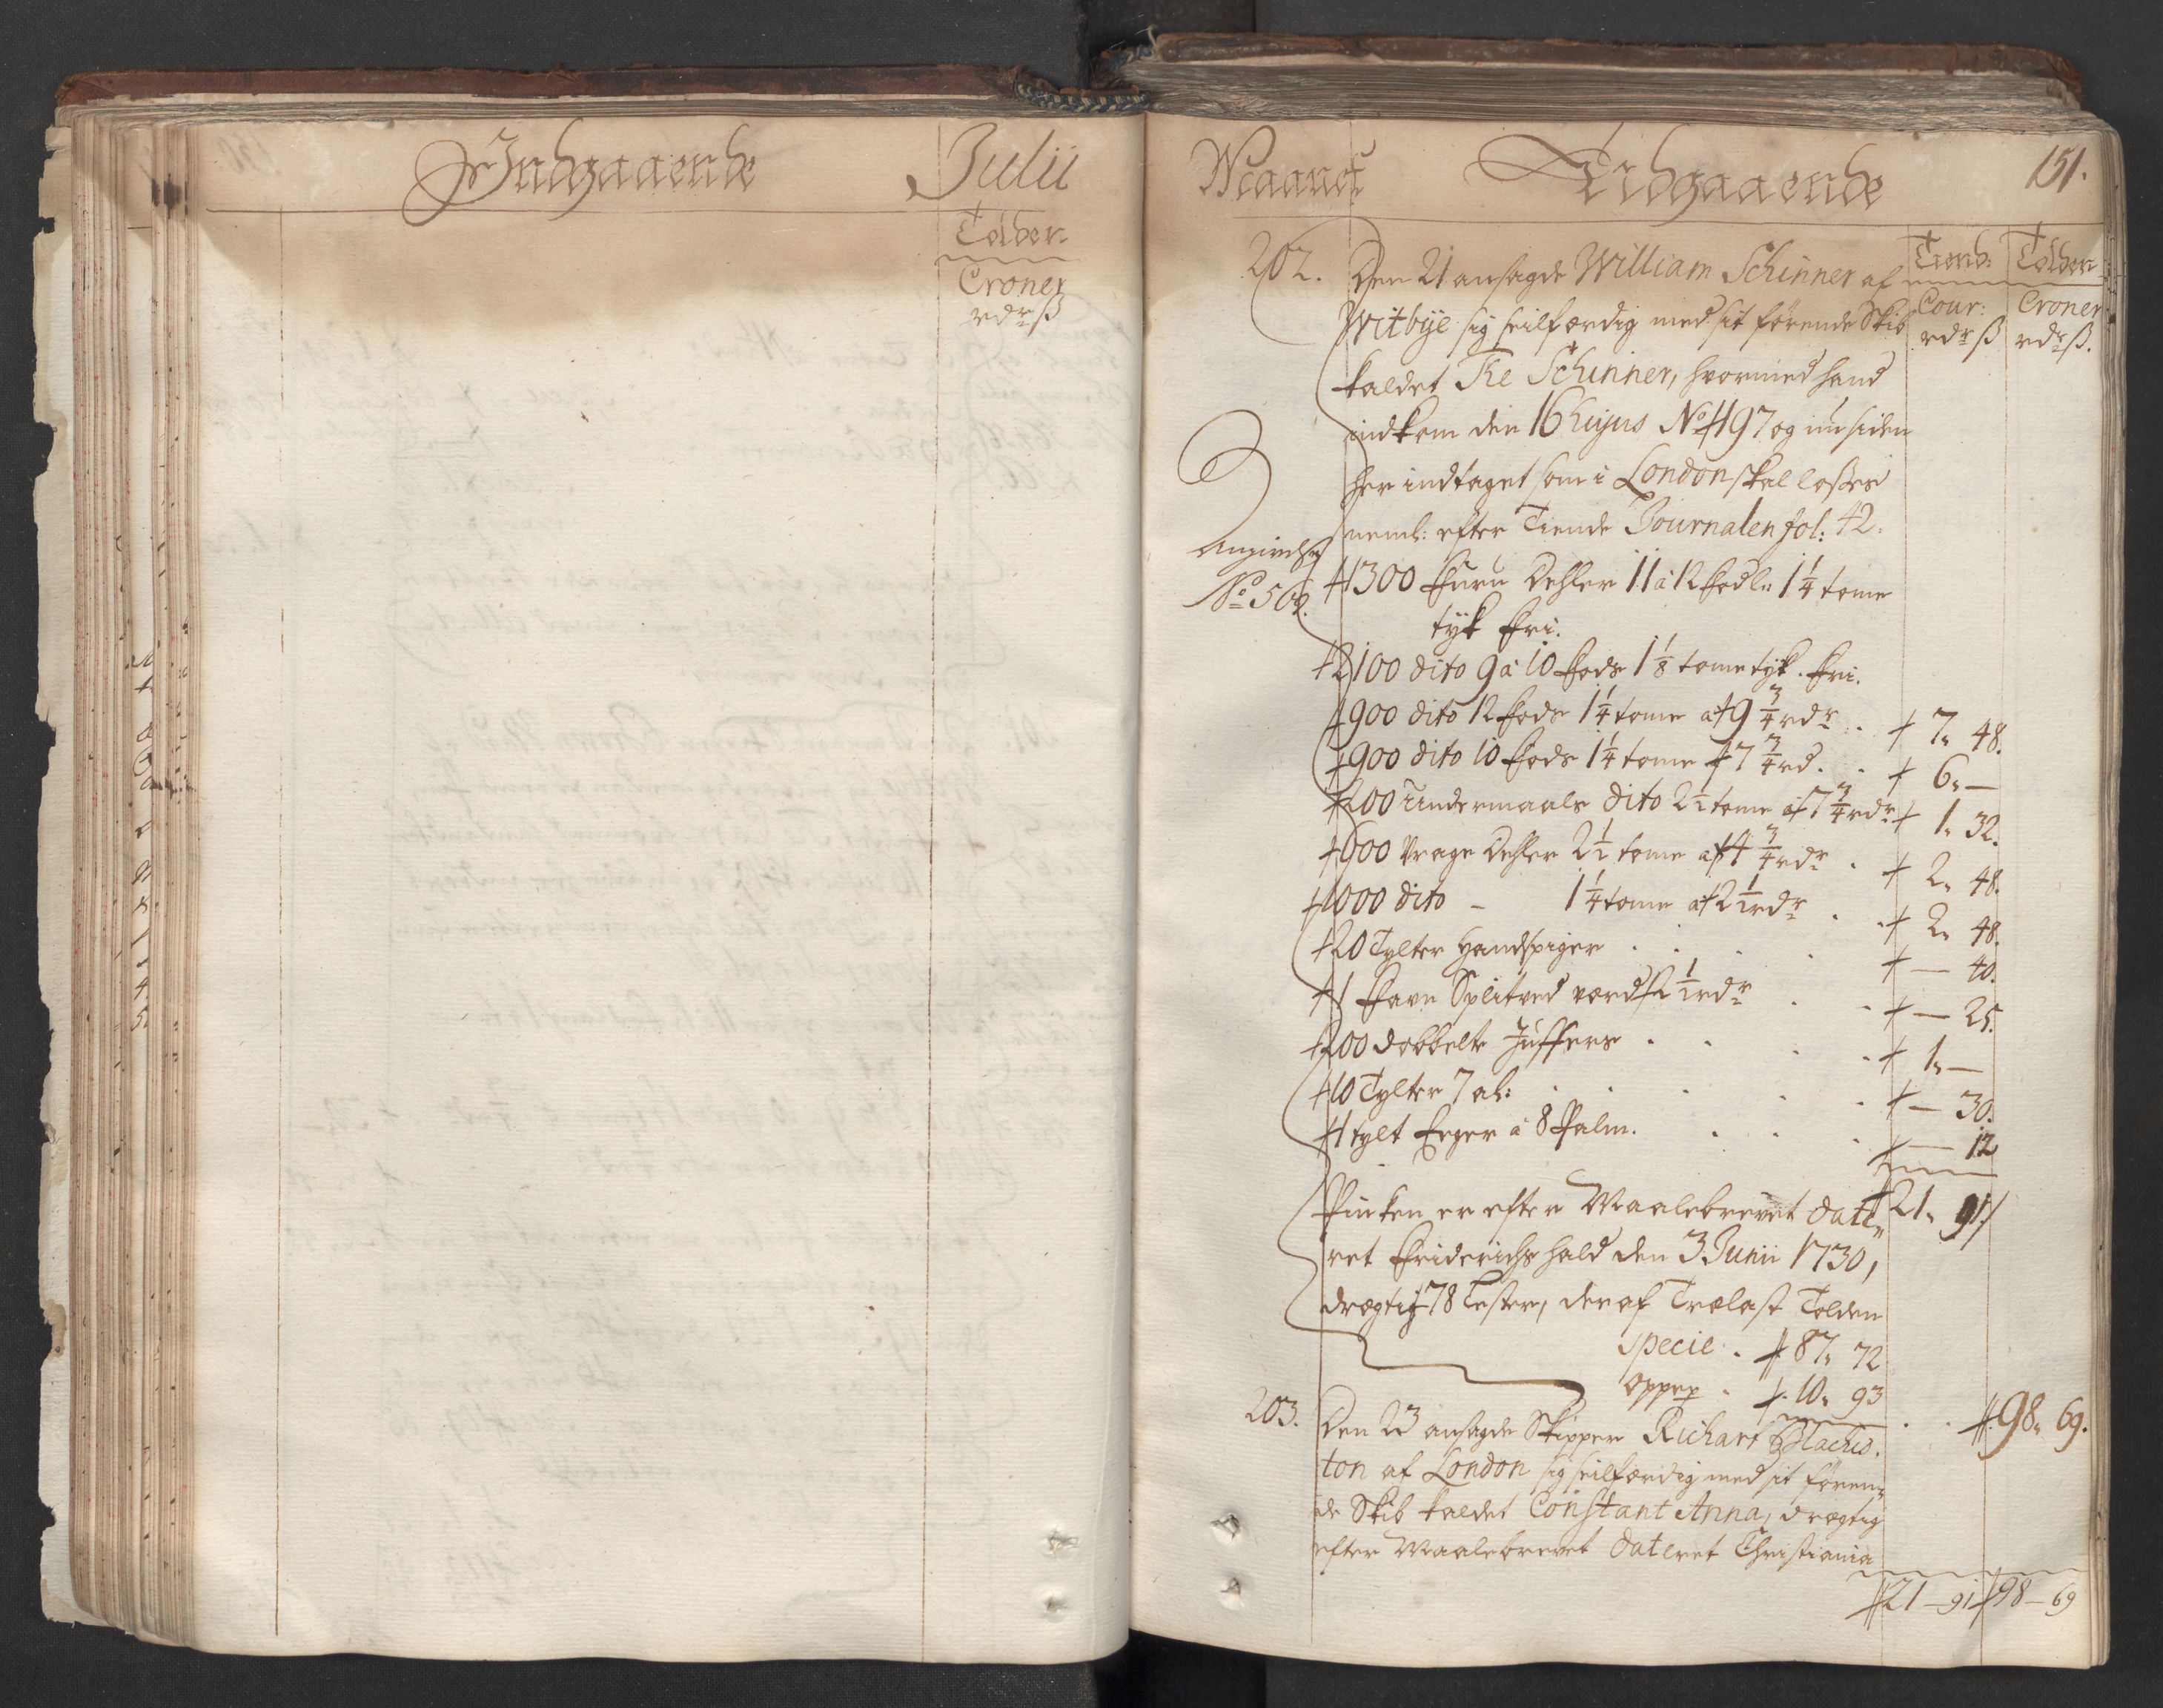 Indgaaende
Julii
Tolden
Croner
rdr ß
Maanet
Udgaaende
151.
Tiend:
Cour:
rdr ß
Tolden
Croner
rdr ß.
202. Den 21 ansagde William Schinner af
Witbye sig seilfærdig med sit förende Skib
kaldet The Schinner, hvormed hand
indkom den 16 hujus No 497 og nu siden
her indtaget som i London skal losses
neml: efter Tiende Journalen fol: 42.
Angivelse
No 502.
1300 Furu Dehler 11 a 12 Fod 1 1/4 tome
tyk Fri.
2100 dito 9 a 10 Fods 1 1/8 tome tyk. Fri.
900 dito 12 Fods 1 1/4 tome a 9 3/4 rdr . 7" 48.
900 dito 10 Fods 1 1/4 tome 7 3/4 rd . . 6" —
200 Undermaals dito 2 1/2 tome a 7 3/4 rdr 1" 32.
600 Vrage Dehler 2 1/2 tome a 4 3/4 rdr . 2" 48.
1000 dito - 1 1/4 tome a 2 1/2 rdr . . 2" 48.
20 Tylter Handspiger . . . . — 40.
1 Favn Splitved værd 2 1/2 rdr . . — 25.
200 dobbelte Juffers . . . . 1" —
10 Tylter 7 al: . . . . . — 30.
1 tylt Eeger a 8 Palm. . . . — 12
21" 91
Pinken er efter Maalebrevet date„
ret Friderichshald den 3 Junii 1730,
drægtig 78 Lester, deraf Trælast Tolden
Specie . 87" 72
opper . 10" 93
. . 98" 69.
203. Den 23 ansagde Skipper Richart Blackis.
ton af London sig seilfærdig med sit fören„
de Skib kaldet Constant Anna, drægtig
efter Maalebrevet dateret Christiania
21 — 91 98 — 69